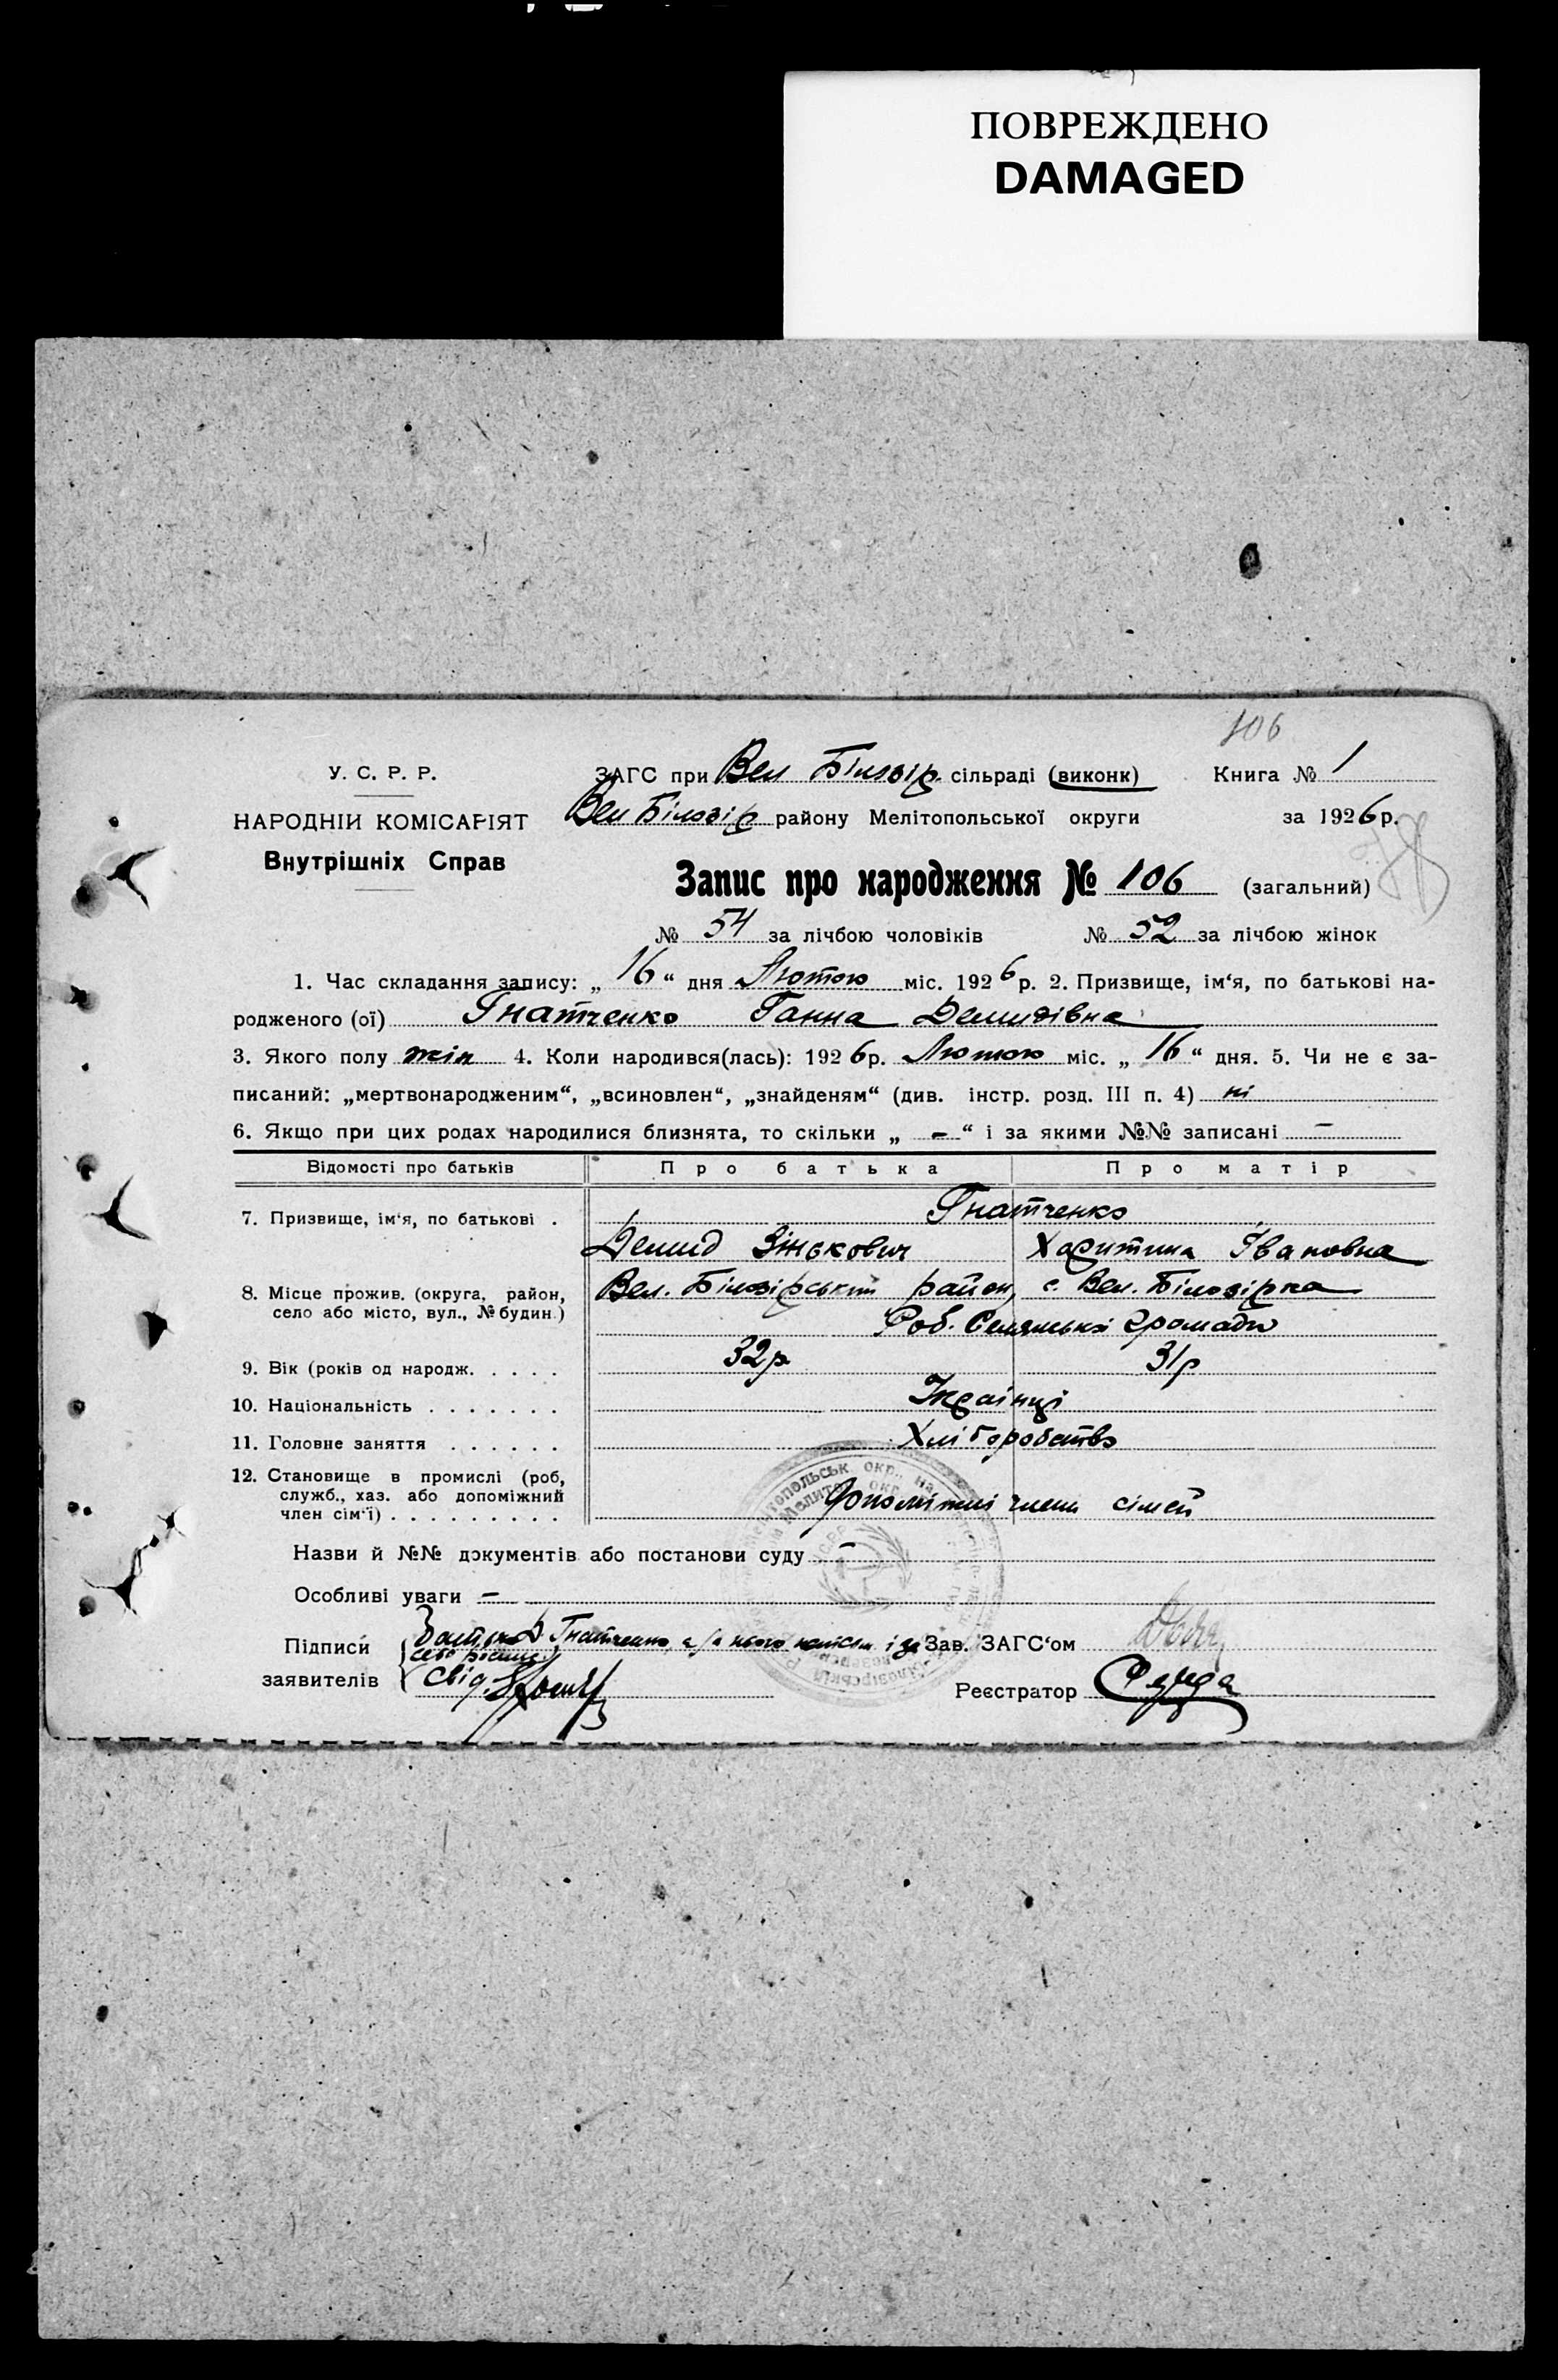 ПОВРЕЖДЕНО
DAMAGED
106
У. С. Р. Р.
ЗАГС при Вел Білозір. сільраді (виконк)
Книга № 1
НАРОДНІЙ КОМІСАРІЯТ
Вел Білозір району Мелітопольської округи
за 1926 р.
Внутрішніх Справ
Запис про народження № 106 (загальний)
№ 54 за лічбою чоловіків № 52 за лічбою жінок
1. Час складання запису: „ 16 “ дня Лютого міс. 1926 р. 2. Призвище, ім‘я, по батькові на-
родженого (ої) Гнатченко Ганна Демидівна
3. Якого полу жін 4. Коли народився(лась): 1926 р. Лютого міс. „ 16 “ дня. 5. Чи не є за-
писаний: „мертвонародженим“, „всиновлен“, „знайденям“ (див. інстр. розд. III п. 4) ні
6. Якщо при цих родах народилися близнята, то скільки „ - “ і за якими №№ записані -
Відомості про батьків
Про батька
Про матір
7. Призвище, ім‘я, по батькові .
Гнатченко
Демид Зінькович
Харитина Івановна
8. Місце прожив. (округа, район,
село або місто, вул., № будин.)
Вел. Білозірський район, с. Вел. Білозірка
Роб. Селянської громади
9. Вік (років од народж. . . . .
32 р
31 р
10. Національність . . . . . . .
Українці
11. Головне заняття . . . . . .
Хліборобство
12. Становище в промислі (роб,
служб., хаз. або допоміжний
член сім‘ї) . . . . . . . . .
допоміжні члени сімей
Назви й №№ документів або постанови суду -
Особливі уваги -
Підписи
заявителів
Гнатченко, а за нього
Свід.
Зав. ЗАГС‘ом
Реєстратор Середа